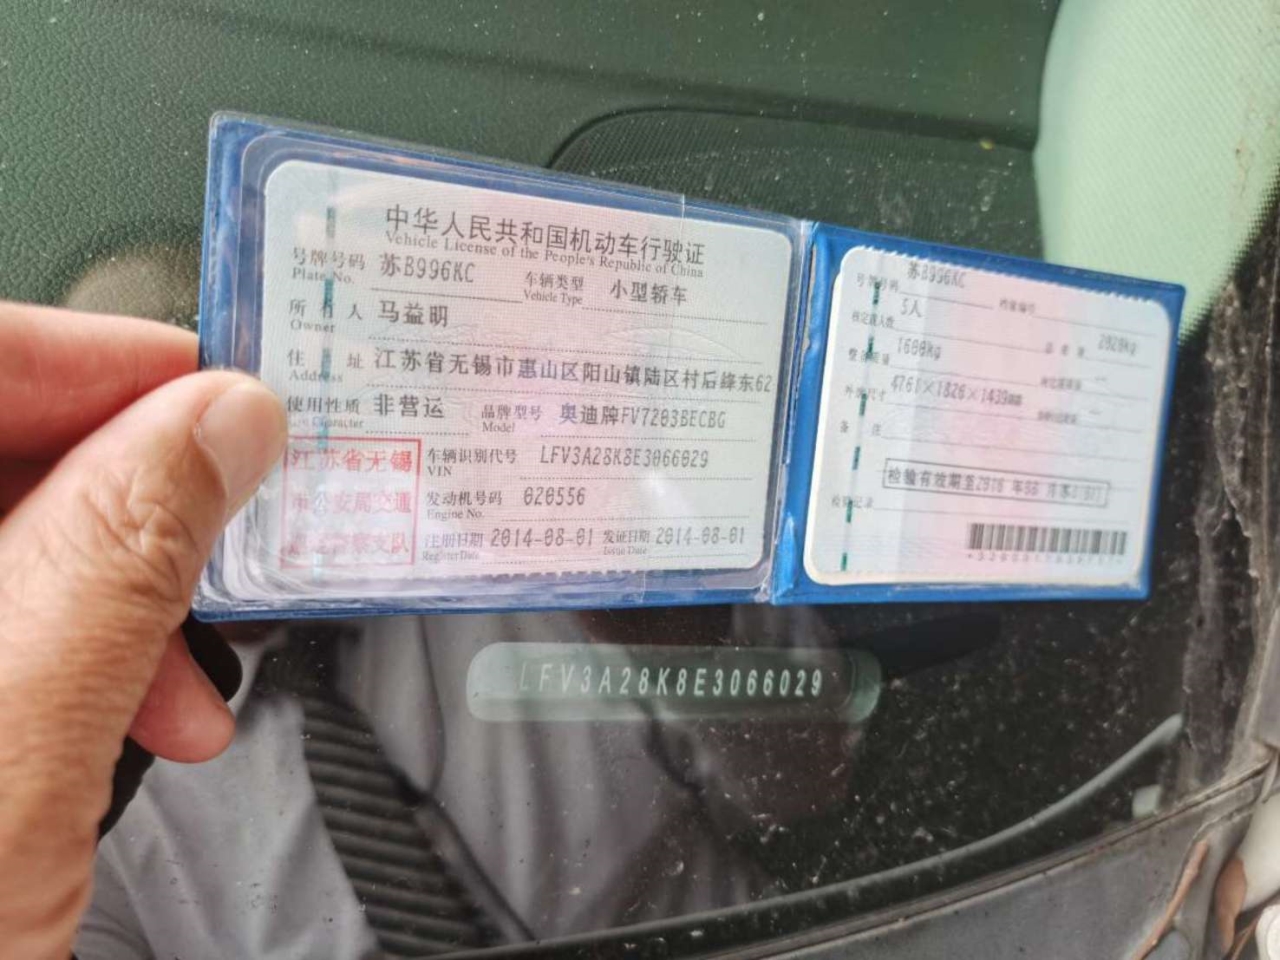 中华人民共和国机动车行驶证
Vehicle License of the People's Republic of China
号牌号码 苏B996KC 车辆类型 小型轿车
Plate No. Vehicle Type
所有人 马益明
Owner
住址 江苏省无锡市惠山区阳山镇陆区村后绛东62
Address
使用性质 非营运 品牌型号 奥迪牌FV7203BECBG
Use Character Model
江苏省无锡
市公安局交通
警察支队
车辆识别代号 LFV3A28K8E3066029
VIN
发动机号码 020556
Engine No.
注册日期 2014-08-01 发证日期 2014-08-01
Register Date Issue Date
号牌号码 苏B996KC 档案编号
核定载人数 5人 总质量 2020kg
整备质量 1600kg 核定载质量 —
外廓尺寸 4761×1826×1439mm —
备注
检验有效期至2016年08月
检验记录
LFV3A28K8E3066029